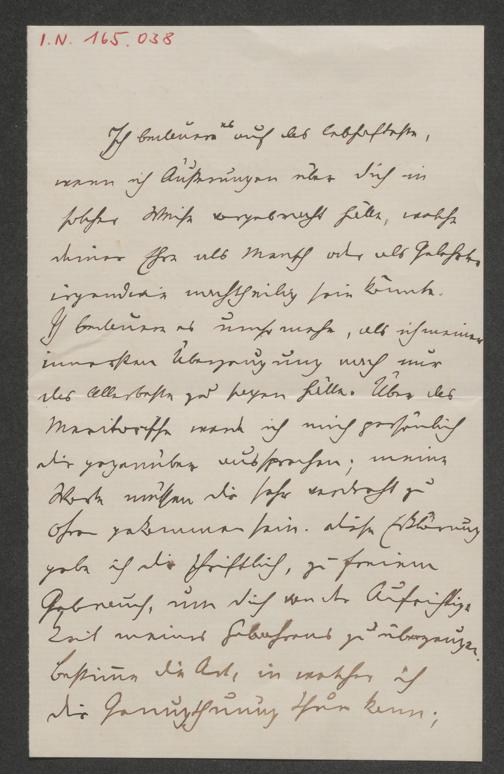 I.N. 165.038
Ich bedauere es auf das lebhafteste,
wenn ich Äußerungen über dich in
solcher Weise vorgebracht hätte, welche
deiner Ehre als Mensch oder als Gelehrter
irgendwie nachtheilig sein könnte.
Ich bedauere es umsomehr, als ich meiner
innersten Überzeugung nach nur
das Allerbeste zu sagen hätte. Über das
Meritorische werde ich mich persönlich
dir gegenüber aussprechen; meine
Worte müssen dir sehr verdreht zu
Ohren gekommen sein. Diese Erklärung
gebe ich dir schriftlich, zu freiem
Gebrauch, um dich von der Aufrichtig-
keit meines Gebahrens zu überzeugen.
Bestimme die Art, in welcher ich
dir Genugthuung thun kann;